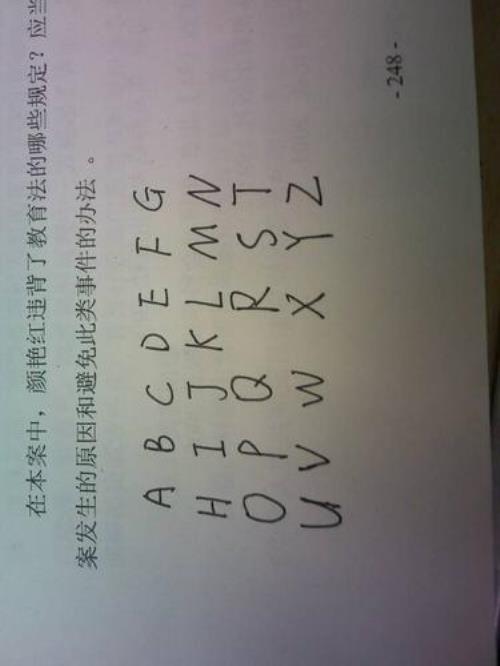 在本案中，颜艳红违背了教育法的哪些规定？应当
案发生的原因和避免此类事件的办法。
A B C D E F G
H I J K L M N
O P Q R S T
U V W X Y Z
- 248 -